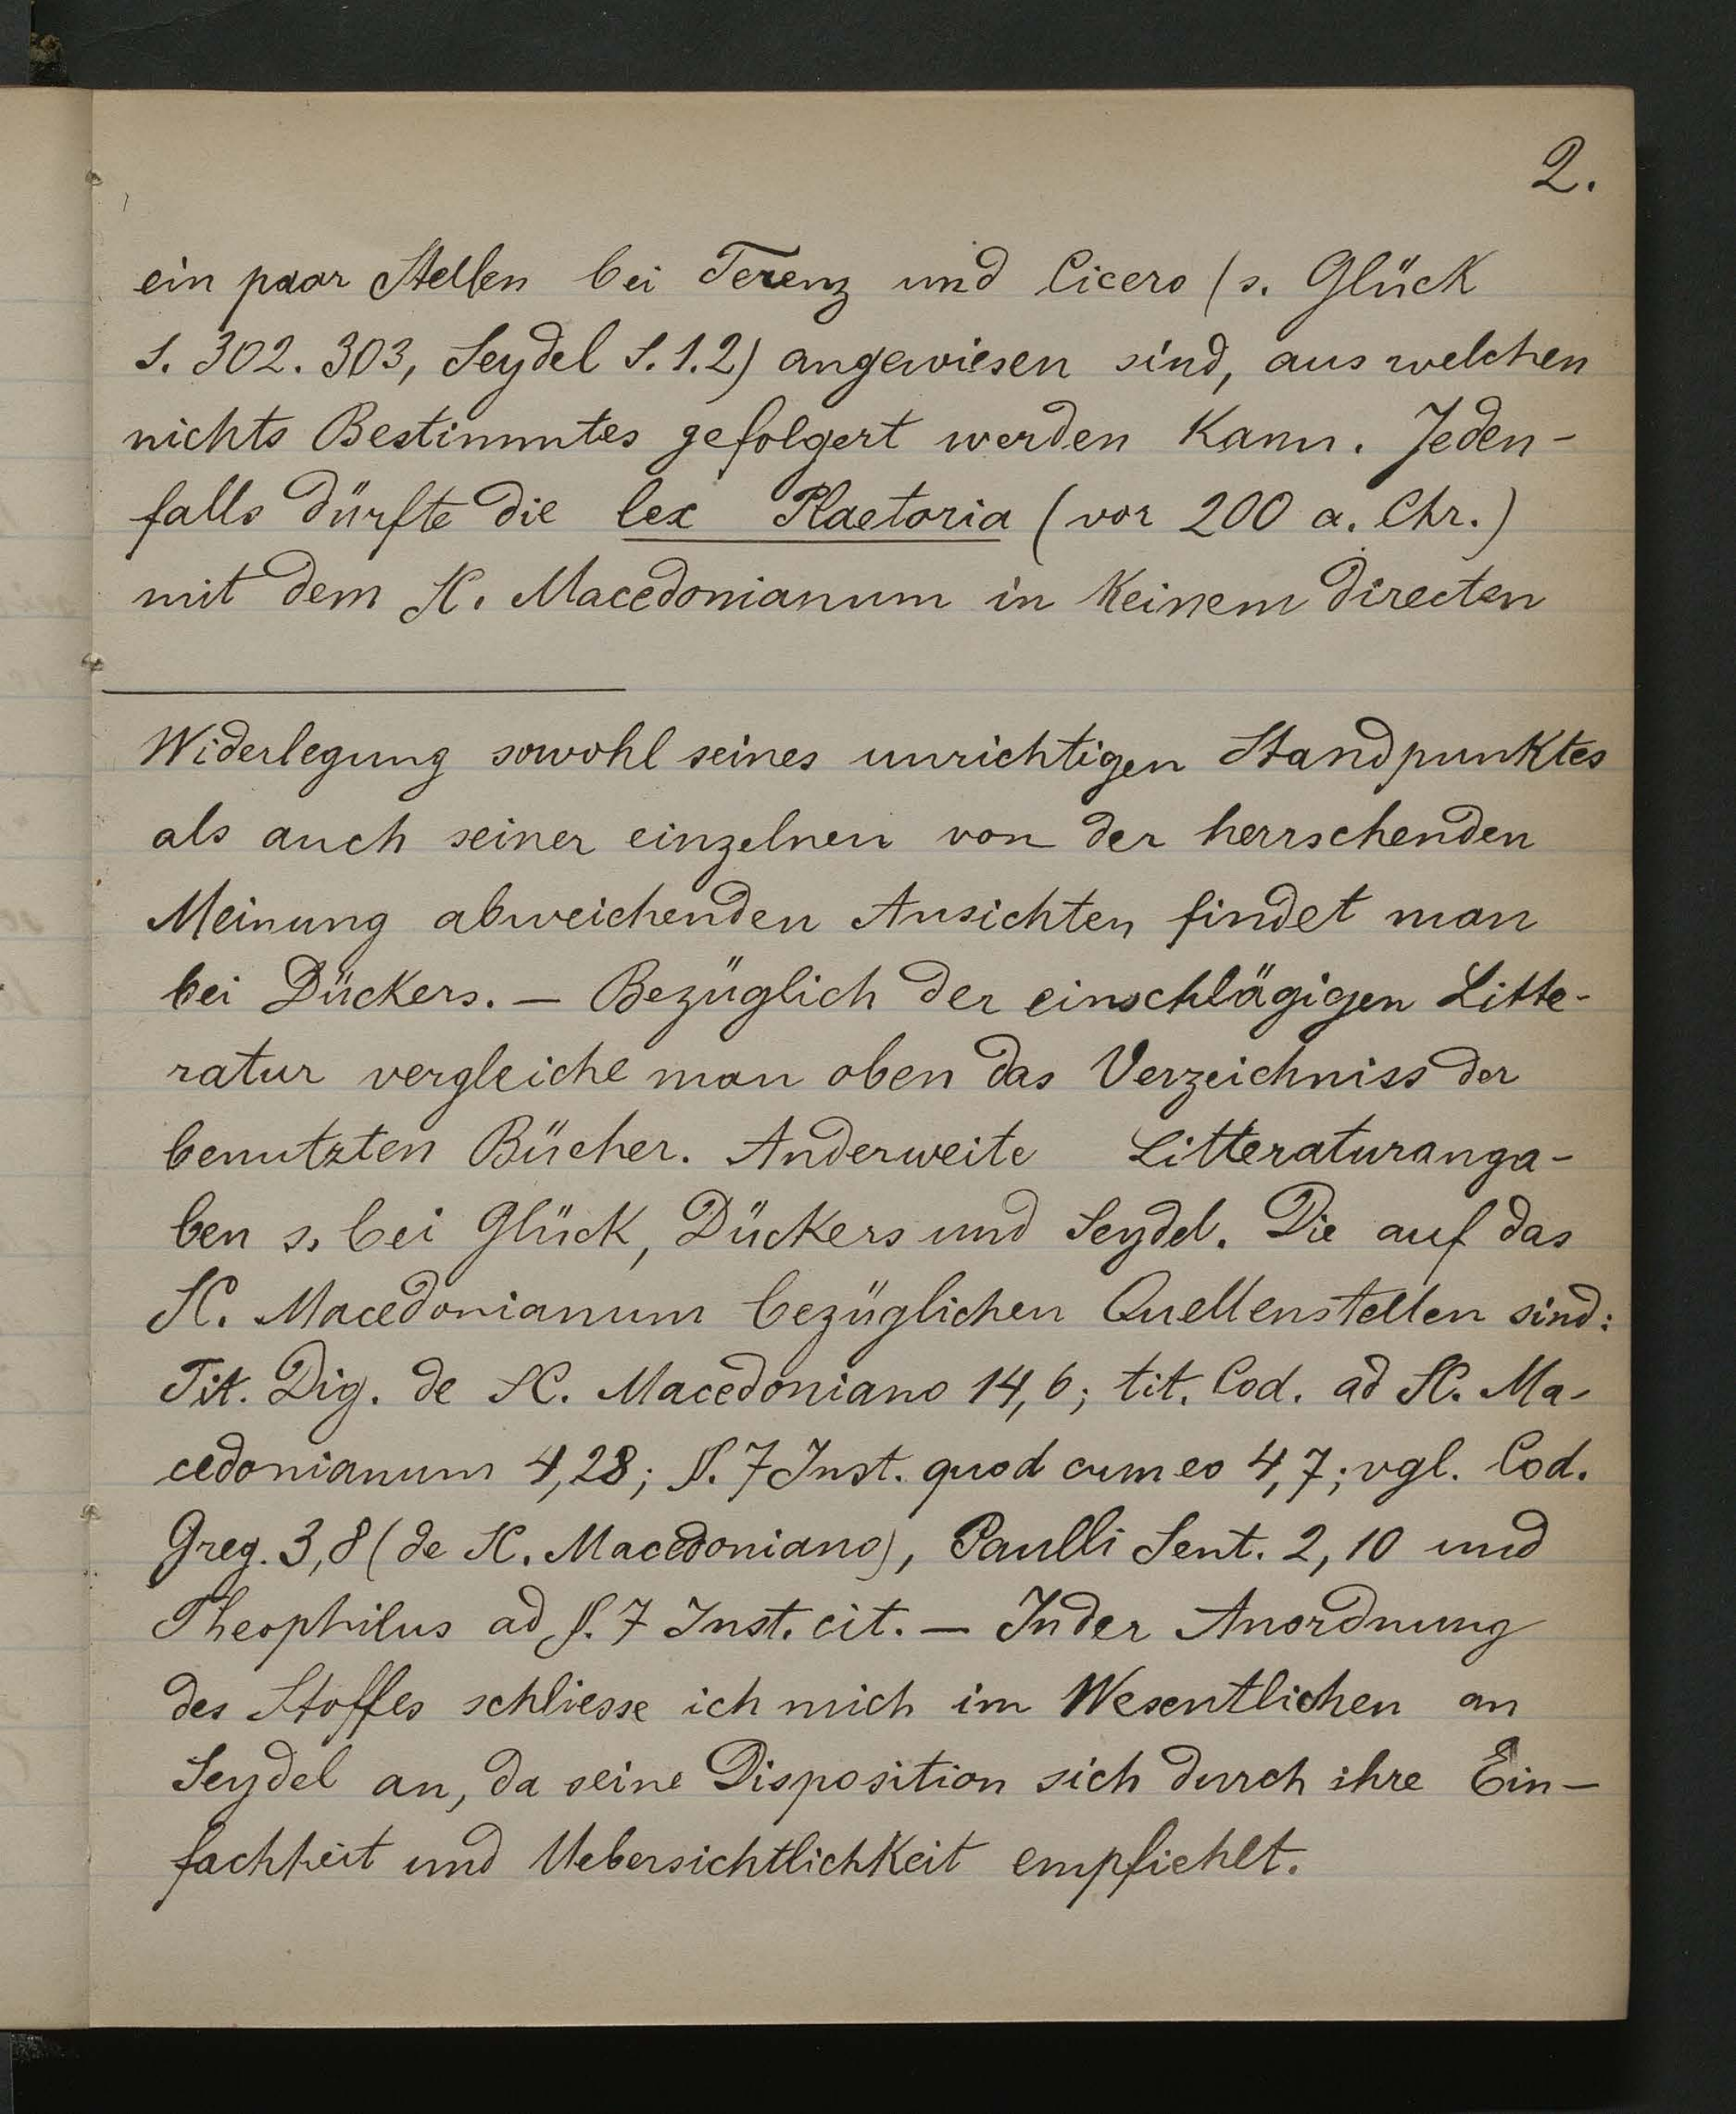 2.
ein paar Stellen bei Terenz und Cicero (s. Glück
S. 302. 303, Seydel S. 1.2) angewiesen sind, aus welchen
nichts Bestimmtes gefolgert werden kann. Jeden-
falls dürfte die lex Plaetoria (vor 200 a. Chr.)
mit dem SC. Macedonianum in keinem directen
Widerlegung sowohl seines unrichtigen Standpunktes
als auch seiner einzelnen von der herrschenden
Meinung abweichenden Ansichten findet man
bei Dückers. — Bezüglich der einschlägigen Litte-
ratur vergleiche man oben das Verzeichniss der
benutzten Bücher. Anderweite Litteraturanga-
ben s. bei Glück, Dückers und Seydel. Die auf das
SC. Macedonianum bezüglichen Quellenstellen sind:
Tit. Dig. de SC. Macedoniano 14,6; tit. Cod. ad SC. Ma-
cedonianum 4,28; §. 7 Inst. quod cum eo 4,7; vgl. Cod.
Greg. 3,8 (de SC. Macedoniano), Paulli Sent. 2,10 und
Theophilus ad §. 7 Inst. cit. — In der Anordnung
des Stoffes schliesse ich mich im Wesentlichen an
Seydel an, da seine Disposition sich durch ihre Ein-
fachheit und Uebersichtlichkeit empfiehlt.